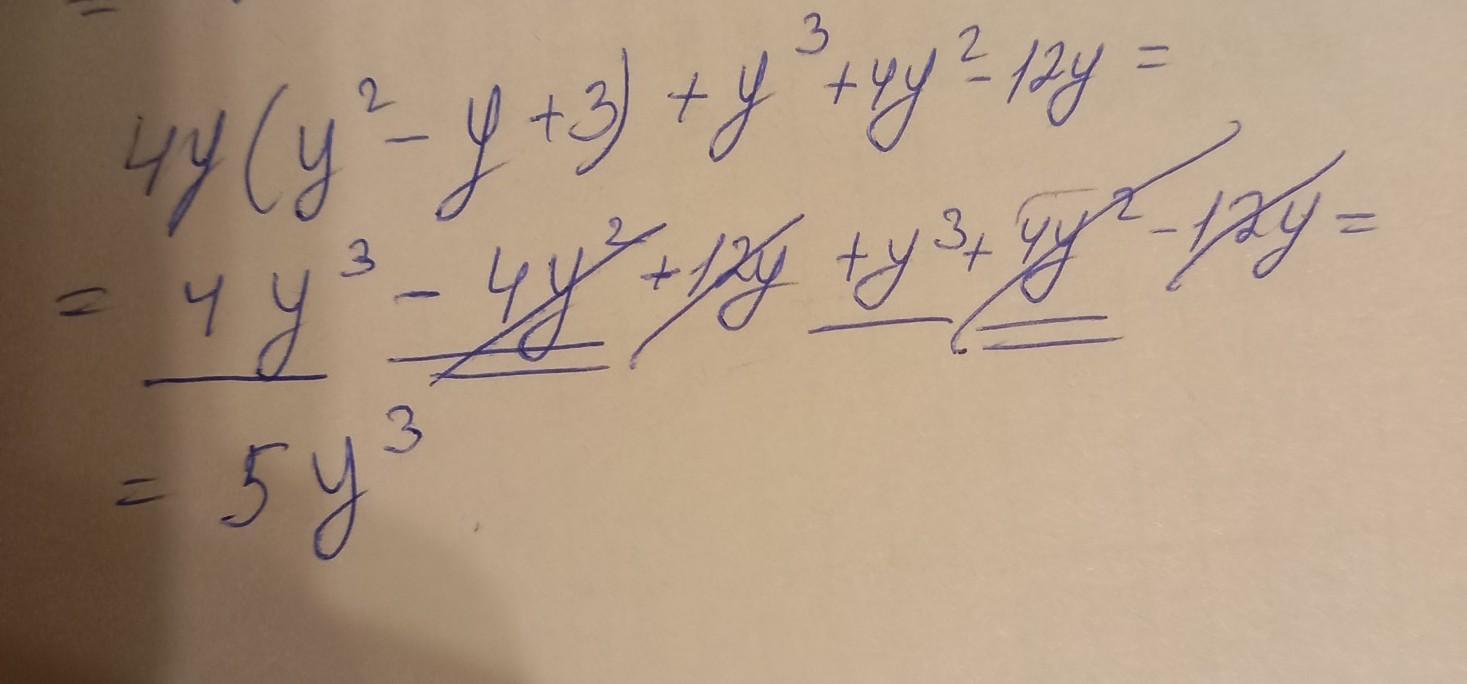 4y(y² - y + 3) + y³ + 4y² - 12y =
= 4y³ - 4y² + 12y + y³ + 4y² - 12y =
= 5y³